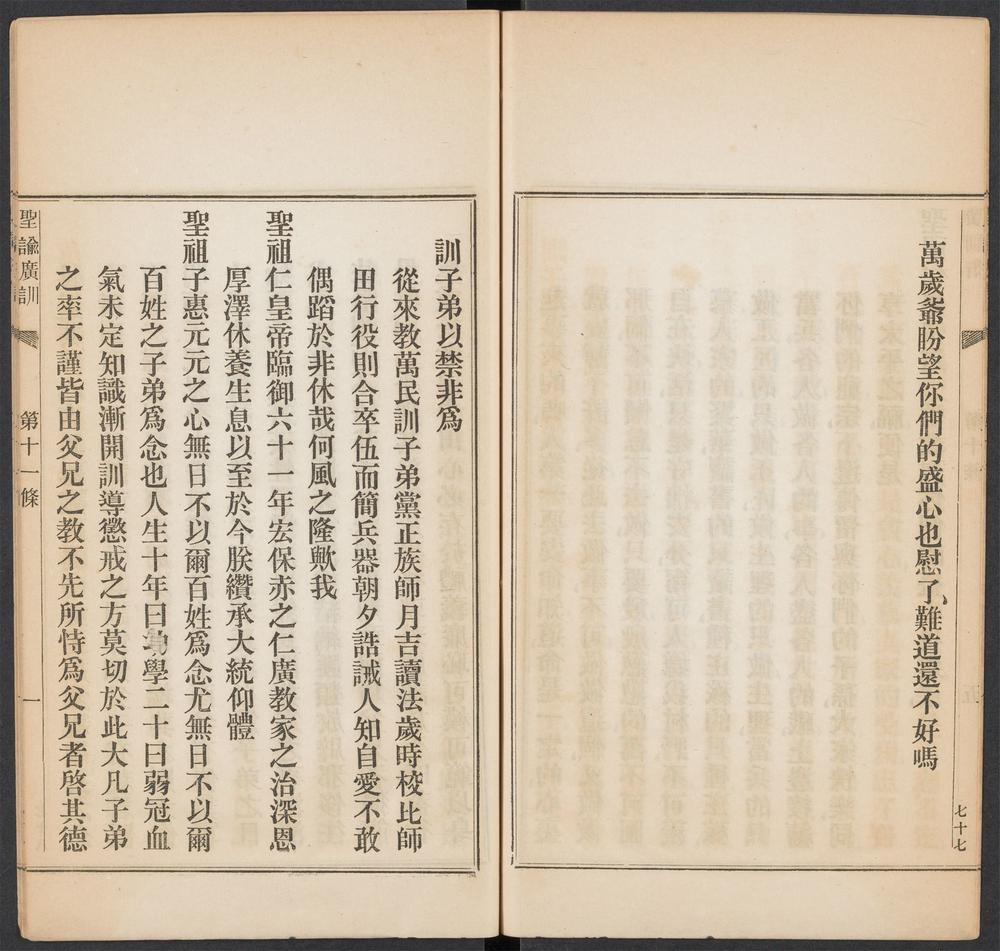 萬歲爺盼望你們的盛心也慰了難道還不好嗎
七十七
訓子弟以禁非爲
從來教萬民訓子弟黨正族師月吉讀法歲時校比師
田行役則合卒伍而簡兵器朝夕誥誡人知自愛不敢
偶蹈於非休哉何風之隆歟我
聖祖仁皇帝臨御六十一年宏保赤之仁廣教家之治深恩
厚澤休養生息以至於今朕纘承大統仰體
聖祖子惠元元之心無日不以爾百姓爲念尤無日不以爾
百姓之子弟爲念也人生十年曰幼學二十曰弱冠血
氣未定知識漸開訓導懲戒之方莫切於此大凡子弟
之率不謹皆由父兄之教不先所恃爲父兄者啓其德
聖諭廣訓
第十一條
一